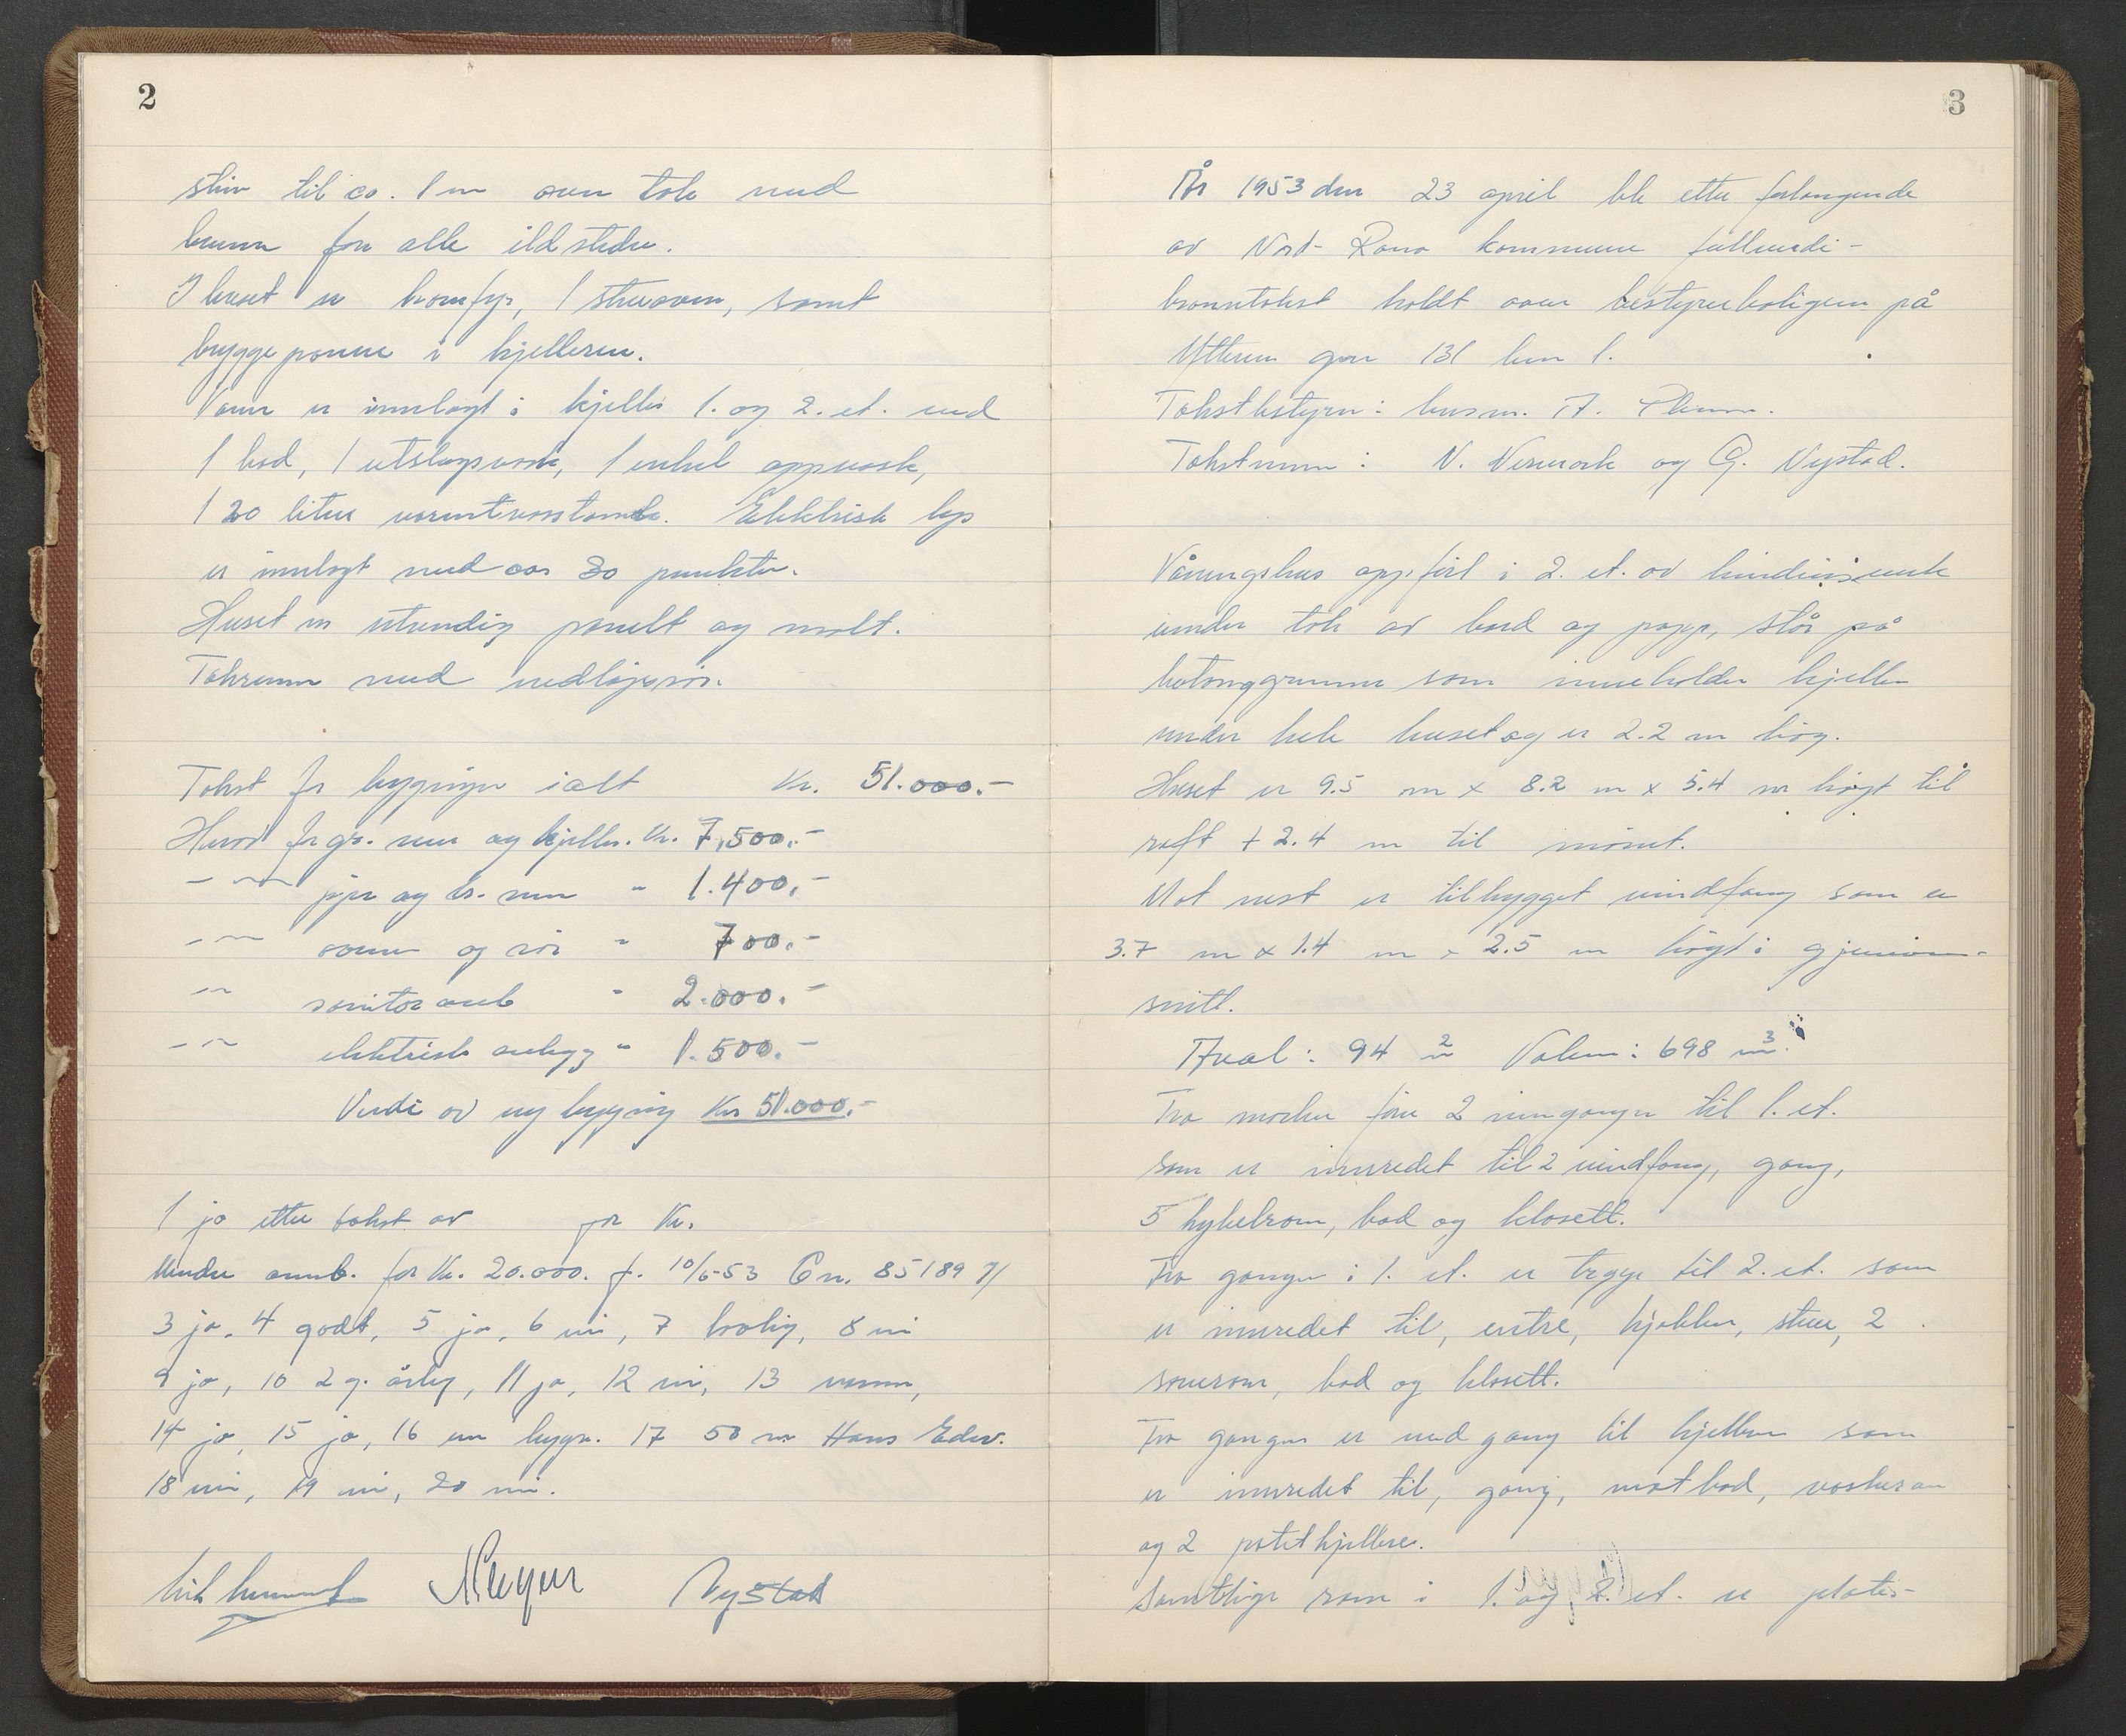 2
stein til ca. 1 m over tak med
brann for alle ildsteder.
I huset er komfyr, 1 stueovn, samt
bryggepanne i kjelleren.
Vann er innlagt i kjeller 1. og 2. et. med
1 bad, 1 utslagsvask, 1 enkel oppvask,
120 liter varmtvannstank. Elektrisk lys
er innlagt med ca. 30 punkter.
Huset er utvendig panelt og malt.
Takrenner med nedløpsrør.
Takst for bygningen i alt Kr. 51.000.-
Herav for gr. mur og kjeller. Kr. 7,500.-
-"- pipe og br. mur " 1.400,-
-"- ovner og rør " 700.-
-"- sanitæranl " 2.000.-
-"- elektrisk anlegg " 1.500.-
Verdi av ny bygning Kr 51.000.-
1 ja etter takst av for Kr.
Under annb. for Kr. 20.000. f. 10/6-53 85189
3 ja, 4 godt, 5 ja, 6 nei, 7 bolig, 8 nei
9 ja, 10 2 g. årlig, 11 ja, 12 nei, 13
14 ja, 15 ja, 16 en bygn. 17 50 m Hans Edv.
18 nei, 19 nei, 20 nei.
Nystad
3
År 1953 den 23 april ble etter forlangende
av Nord-Rana kommune fullverdi-
branntakst holdt over bestyrerboligen på
Ytteren gnr 131 bnr 1.
Takstbestyrer: lensm. A.
Takstmenn: N. Nermark og G. Nystad.
Våningshus oppført i 2. et. av bindingsverk
under tak av bord og papp, står på
betonggrunnmur som inneholder kjeller
under hele huset og er 2.2 m høy.
Huset er 9.5 m x 8.2 m x 5.4 m høyt til
raft + 2.4 m til mønet.
Mot vest er tilbygget vindfang som er
3.7 m x 1.4 m x 2.5 m høyt i gjennom-
snitt.
Areal: 94 m2 Volum: 698 m3.
Fra marken fører 2 innganger til 1. et.
som er innredet til 2 vindfang, gang,
5 hybelrom, bad og klosett.
Fra gangen i 1. et. er trapp til 2. et. som
er innredet til, entre, kjøkken, stue, 2
soverom, bad og klosett.
Fra gangen er nedgang til kjelleren som
er innredet til, gang, matbod, vaskerom
og 2 potetkjellere.
Samtlige rom i 1. og 2. et. er plate-